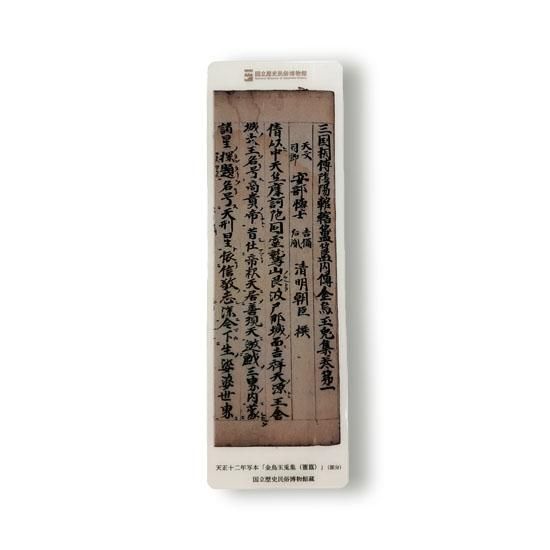 国立歴史民俗博物館
National Museum of Japanese History
三国相傳陰陽輨轄簠簋内傳金烏玉兎集巻第一
天文司郎 安部博士 吉備后胤 清明朝臣 撰
倩以中天竺摩訶陀国霊鷲山艮波尸那城西吉祥天源王舎
城六王名号商貴帝昔仕帝釈天居善現天遊戯三界内蒙
諸星探題名号天刑星依信敬志深今下生娑婆世界
天正十二年写本「金烏玉兎集(簠簋)」(部分)
国立歴史民俗博物館蔵